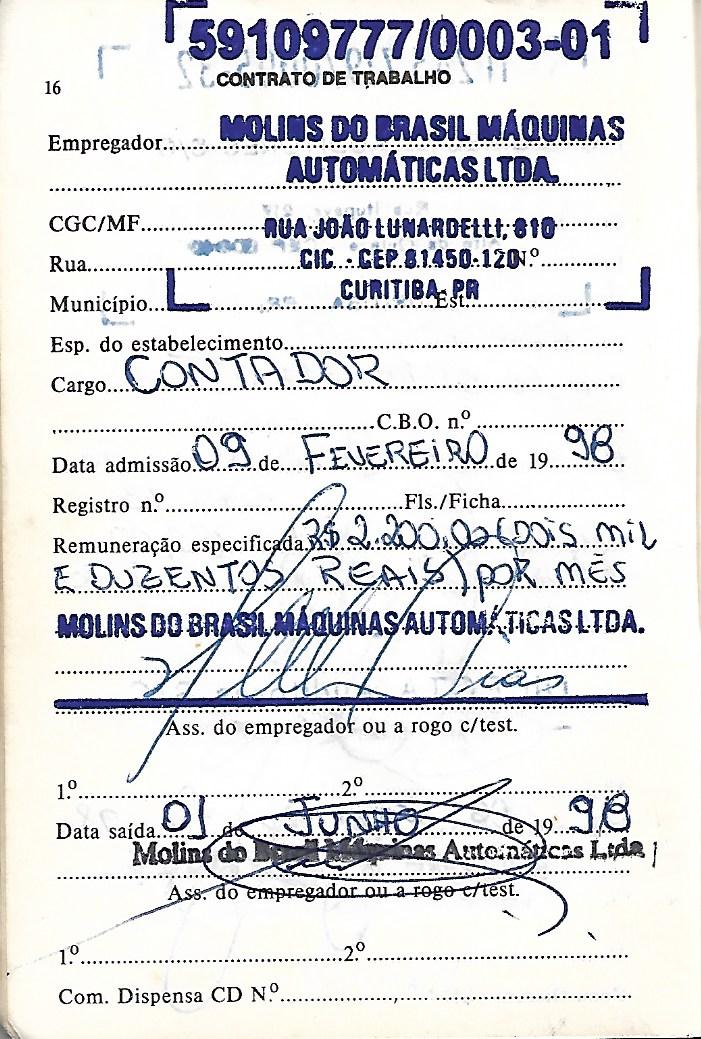 59109777/0003-01
CONTRATO DE TRABALHO
16
Empregador MOLINS DO BRASIL MÁQUINAS
AUTOMÁTICAS LTDA.
CGC/MF RUA JOÃO LUNARDELLI, 810
Rua CIC. - CEP 81450-120 N.º
Município CURITIBA-PR Est.
Esp. do estabelecimento
Cargo CONTADOR
C.B.O. n.º
Data admissão 09 de FEVEREIRO de 19 98
Registro n.º Fls./Ficha
Remuneração especificada R$ 2.200,00 (DOIS MIL
E DUZENTOS REAIS) POR MÊS
MOLINS DO BRASIL MÁQUINAS AUTOMÁTICAS LTDA.
Ass. do empregador ou a rogo c/test.
1.º 2.º
Data saída 01 de JUNHO de 19 98
Molins do Brasil Máquinas Automáticas Ltda
Ass. do empregador ou a rogo c/test.
1.º 2.º
Com. Dispensa CD N.º